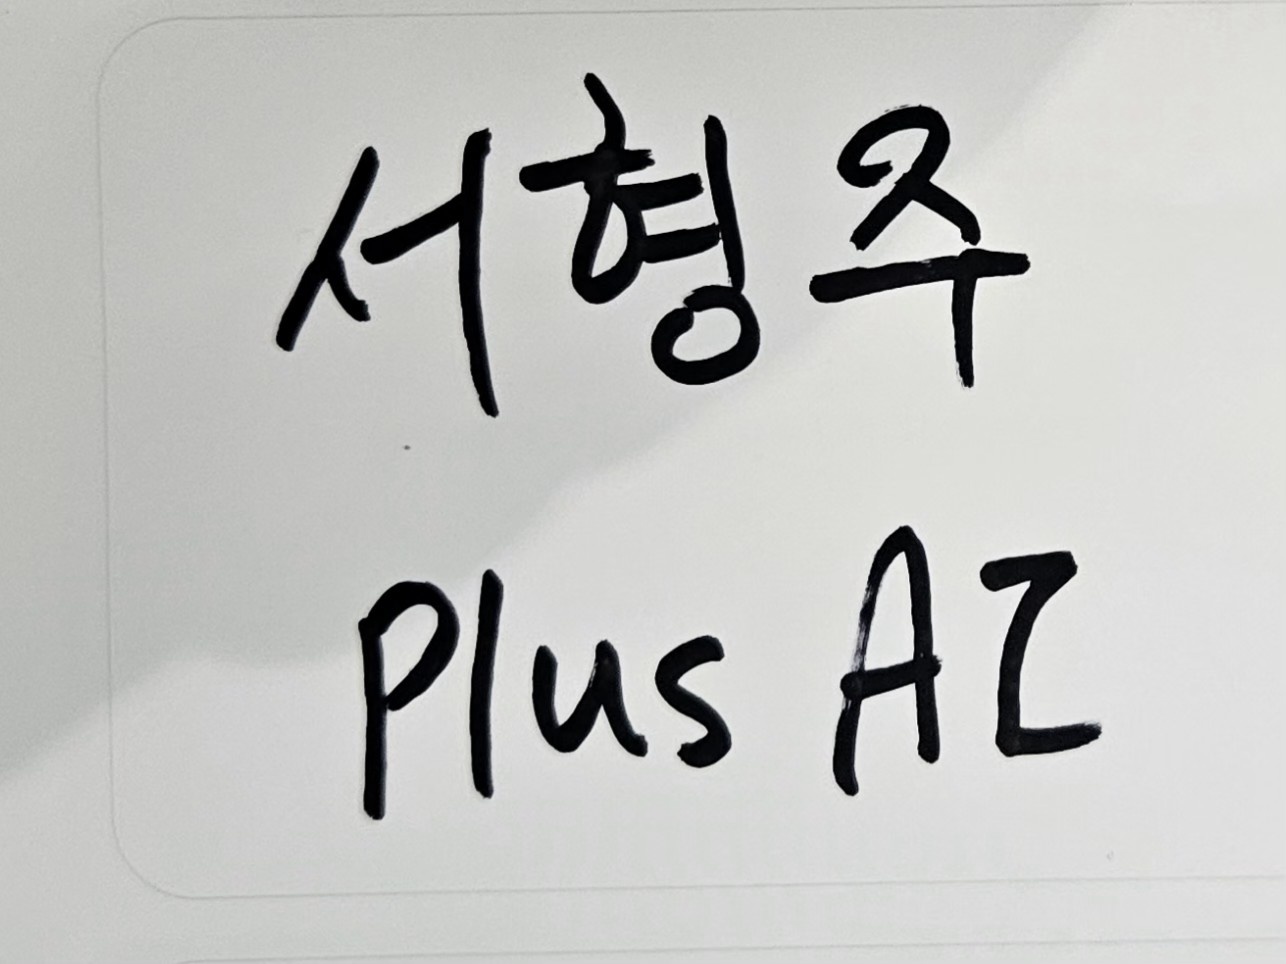 서형주
Plus AI